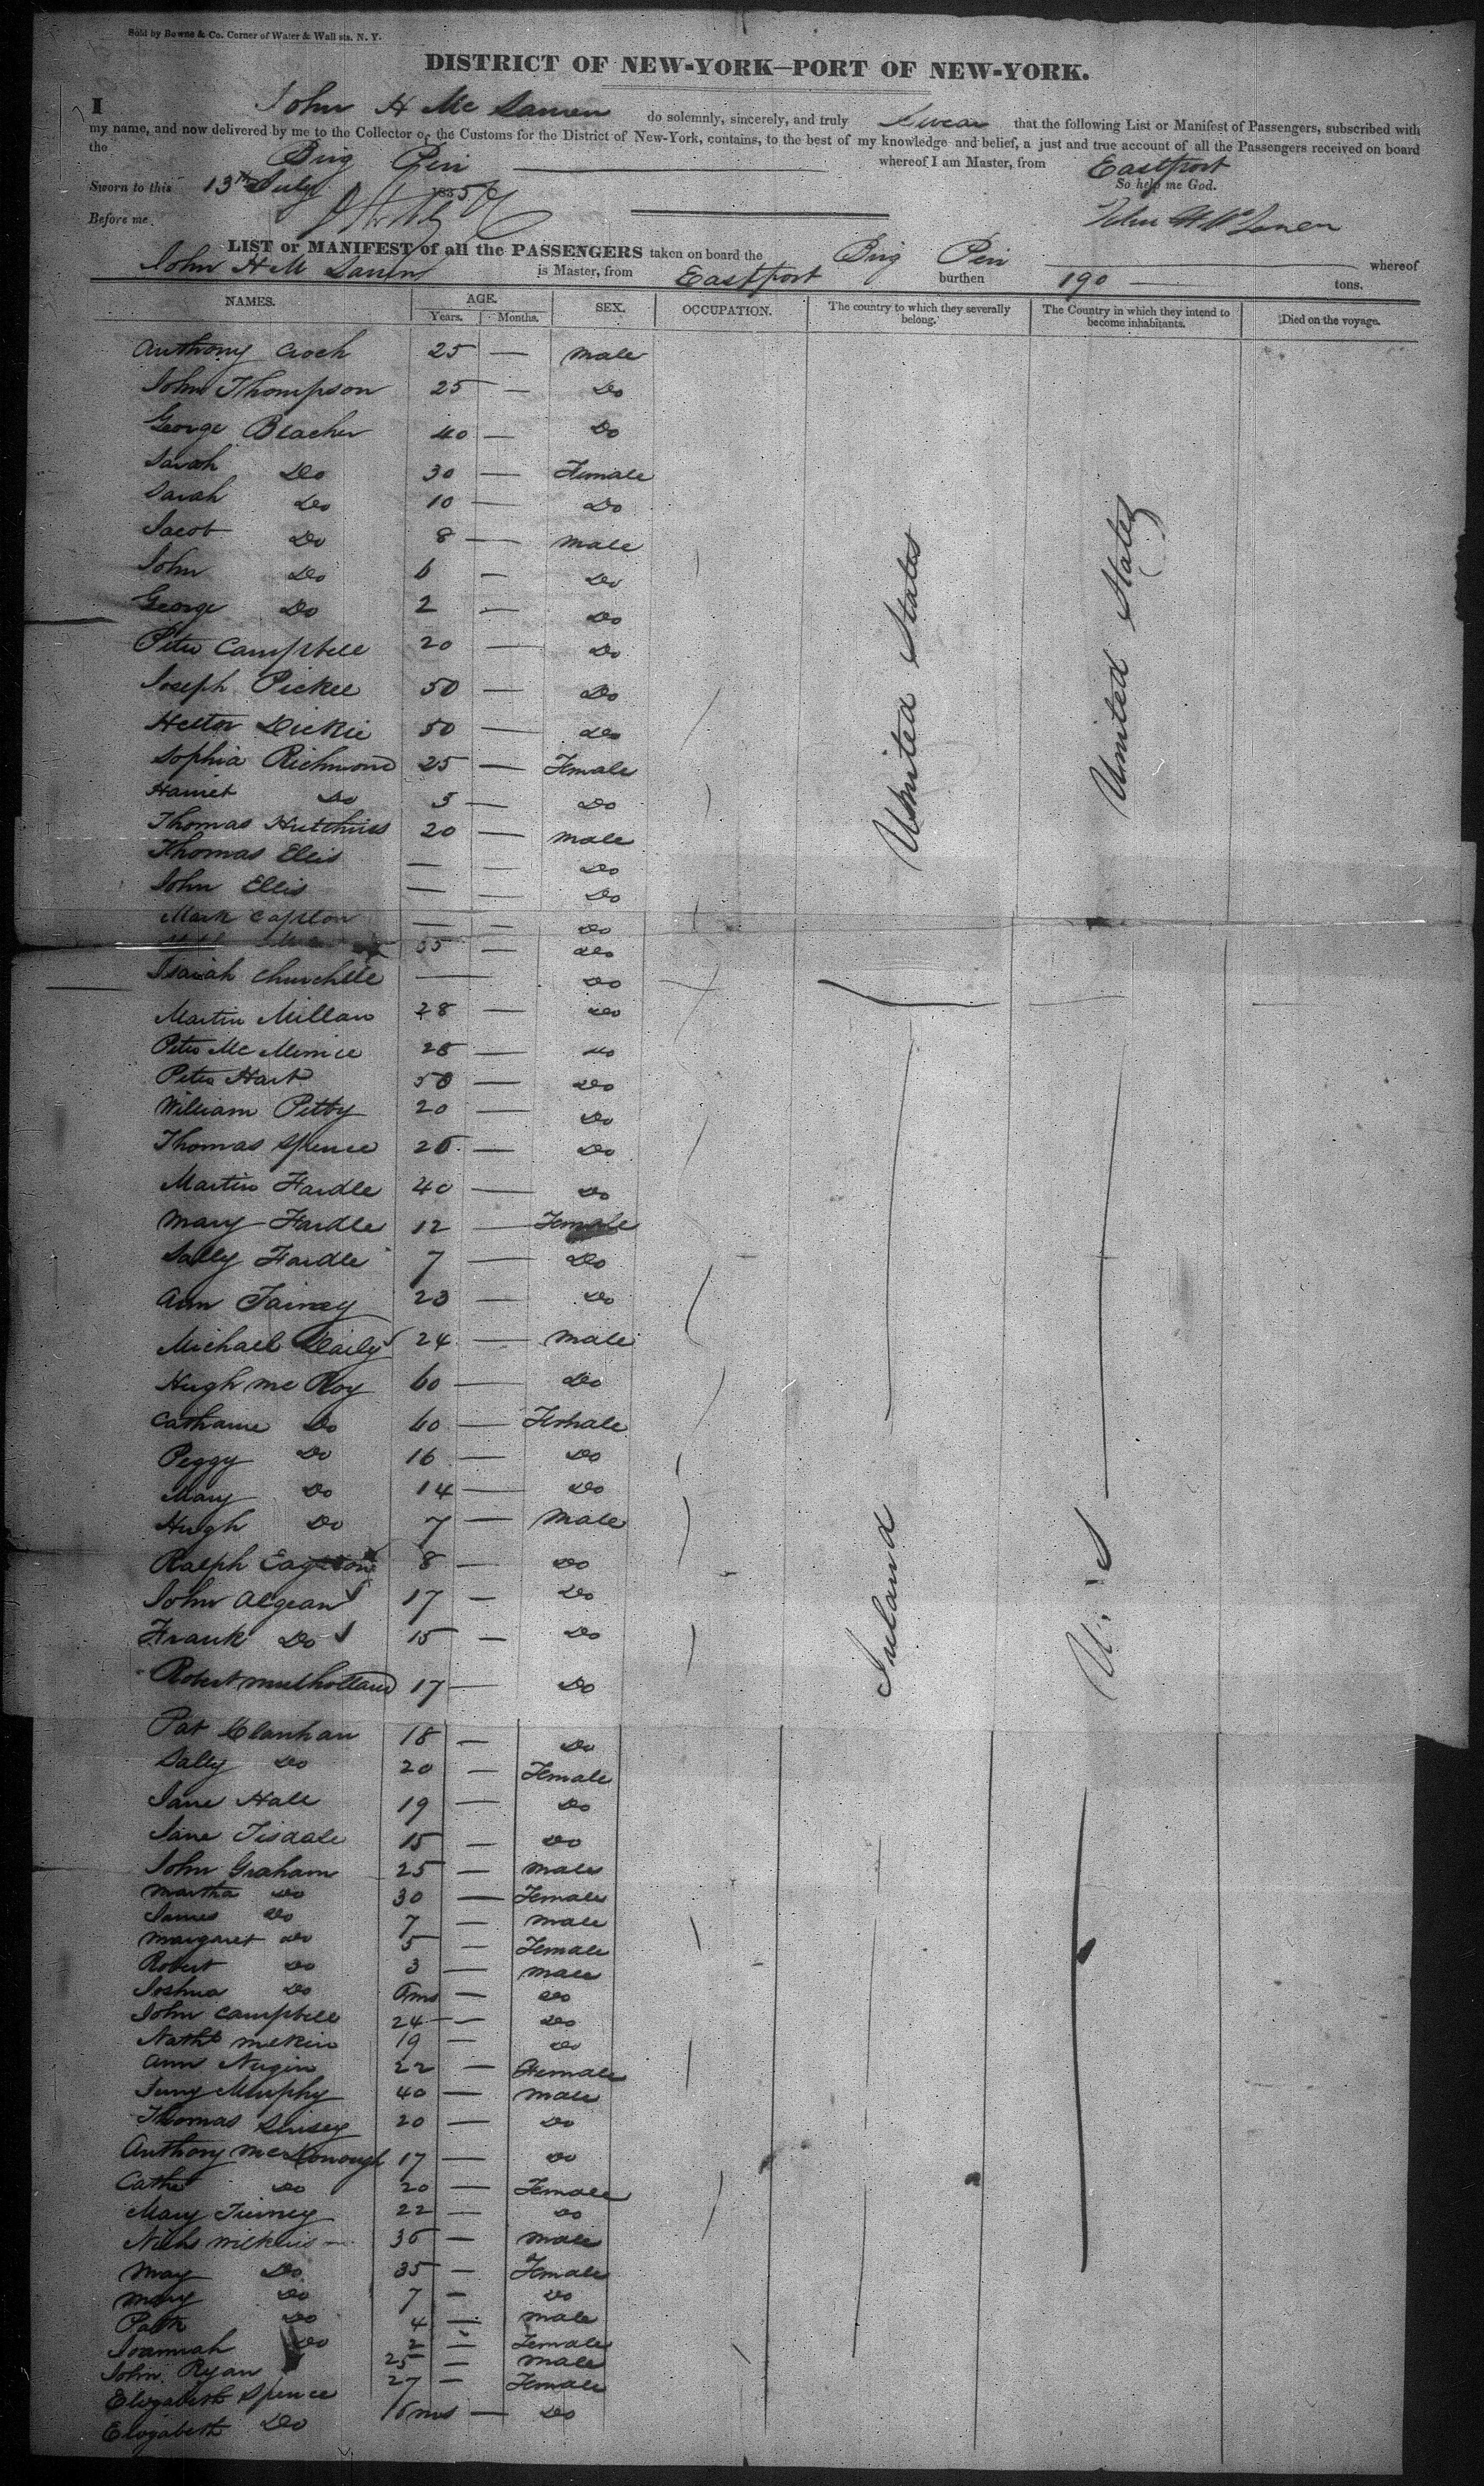 Sold by Bowne & Co. Corner of Water & Wall sts. N. Y.
DISTRICT OF NEW-YORK—PORT OF NEW-YORK.
I John H Mc do solemnly, sincerely, and truly Swear that the following List or Manifest of Passengers, subscribed with
my name, and now delivered by me to the Collector of the Customs for the District of New-York, contains, to the best of my knowledge and belief, a just and true account of all the Passengers received on board
the Brig Peri whereof I am Master, from Eastport
Sworn to this 13th July 1835 So help me God.
Before me John H Mc
LIST or MANIFEST of all the PASSENGERS taken on board the Brig Peri whereof
John H M is Master, from Eastport burthen 190 tons.
NAMES. AGE. SEX. OCCUPATION. The country to which they severally belong. The Country in which they intend to become inhabitants. Died on the voyage.
Years. Months.
Anthony 25 — Male
John Thompson 25 — Do
George Beacher 40 — Do
Sarah Do 30 — Female
Sarah Do 10 — Do
Jacob Do 8 — Male
John Do 6 — Do
George Do 2 — Do
Peter Campbell 20 — Do
Joseph Pickle 50 — Do
Hector Dickie 50 — Do
Sophia Richmond 25 — Female
Harriet Do 5 — Do
Thomas Hutchins 20 — Male
Thomas Ellis — — Do
John Ellis — — Do
Mark — — Do
35 — Do
Isaiah Churchill — Do
United States United States
Martin Millan 28 — Do
Peter Mc 25 — Do
Peter Hart 50 — Do
William Pitty 20 — Do
Thomas Spence 25 — Do
Martin Fardle 40 — Do
Mary Fardle 12 — Female
Sally Fardle 7 — Do
Ann 23 — Do
Michael Daily 24 — Male
Hugh Mc Roy 60 — Do
Catharine Do 60 — Female
Peggy Do 16 — Do
Mary Do 14 — Do
Hugh Do 7 — Male
Ralph 8 — Do
John Algean 17 — Do
Frank Do 15 — Do
Robert Mulholland 17 — Do
Ireland U. S
Pat Clanhan 18 — Do
Sally Do 20 — Female
Jane Hall 19 — Do
Jane Tisdale 15 — Do
John Graham 25 — Male
Martha Do 30 — Female
James Do 7 — Male
Margaret Do 5 — Female
Robert Do 3 — Male
Joshua Do 6ms — Do
John Campbell 24 — Do
Nathl 19 — Do
Ann Nugin 22 — Female
Murphy 40 — Male
Thomas 20 — Do
Anthony McDonough 17 — Do
Cathe Do 20 — Female
Mary Tierney 22 — Do
Nichs 36 — Male
May Do 35 — Female
Mary Do 7 — Do
Patk Do 4 — Male
Joannah Do 2 — Female
John Ryan 25 — Male
Elizabeth Spence 27 — Female
Elizabeth Do 16 mos — Do